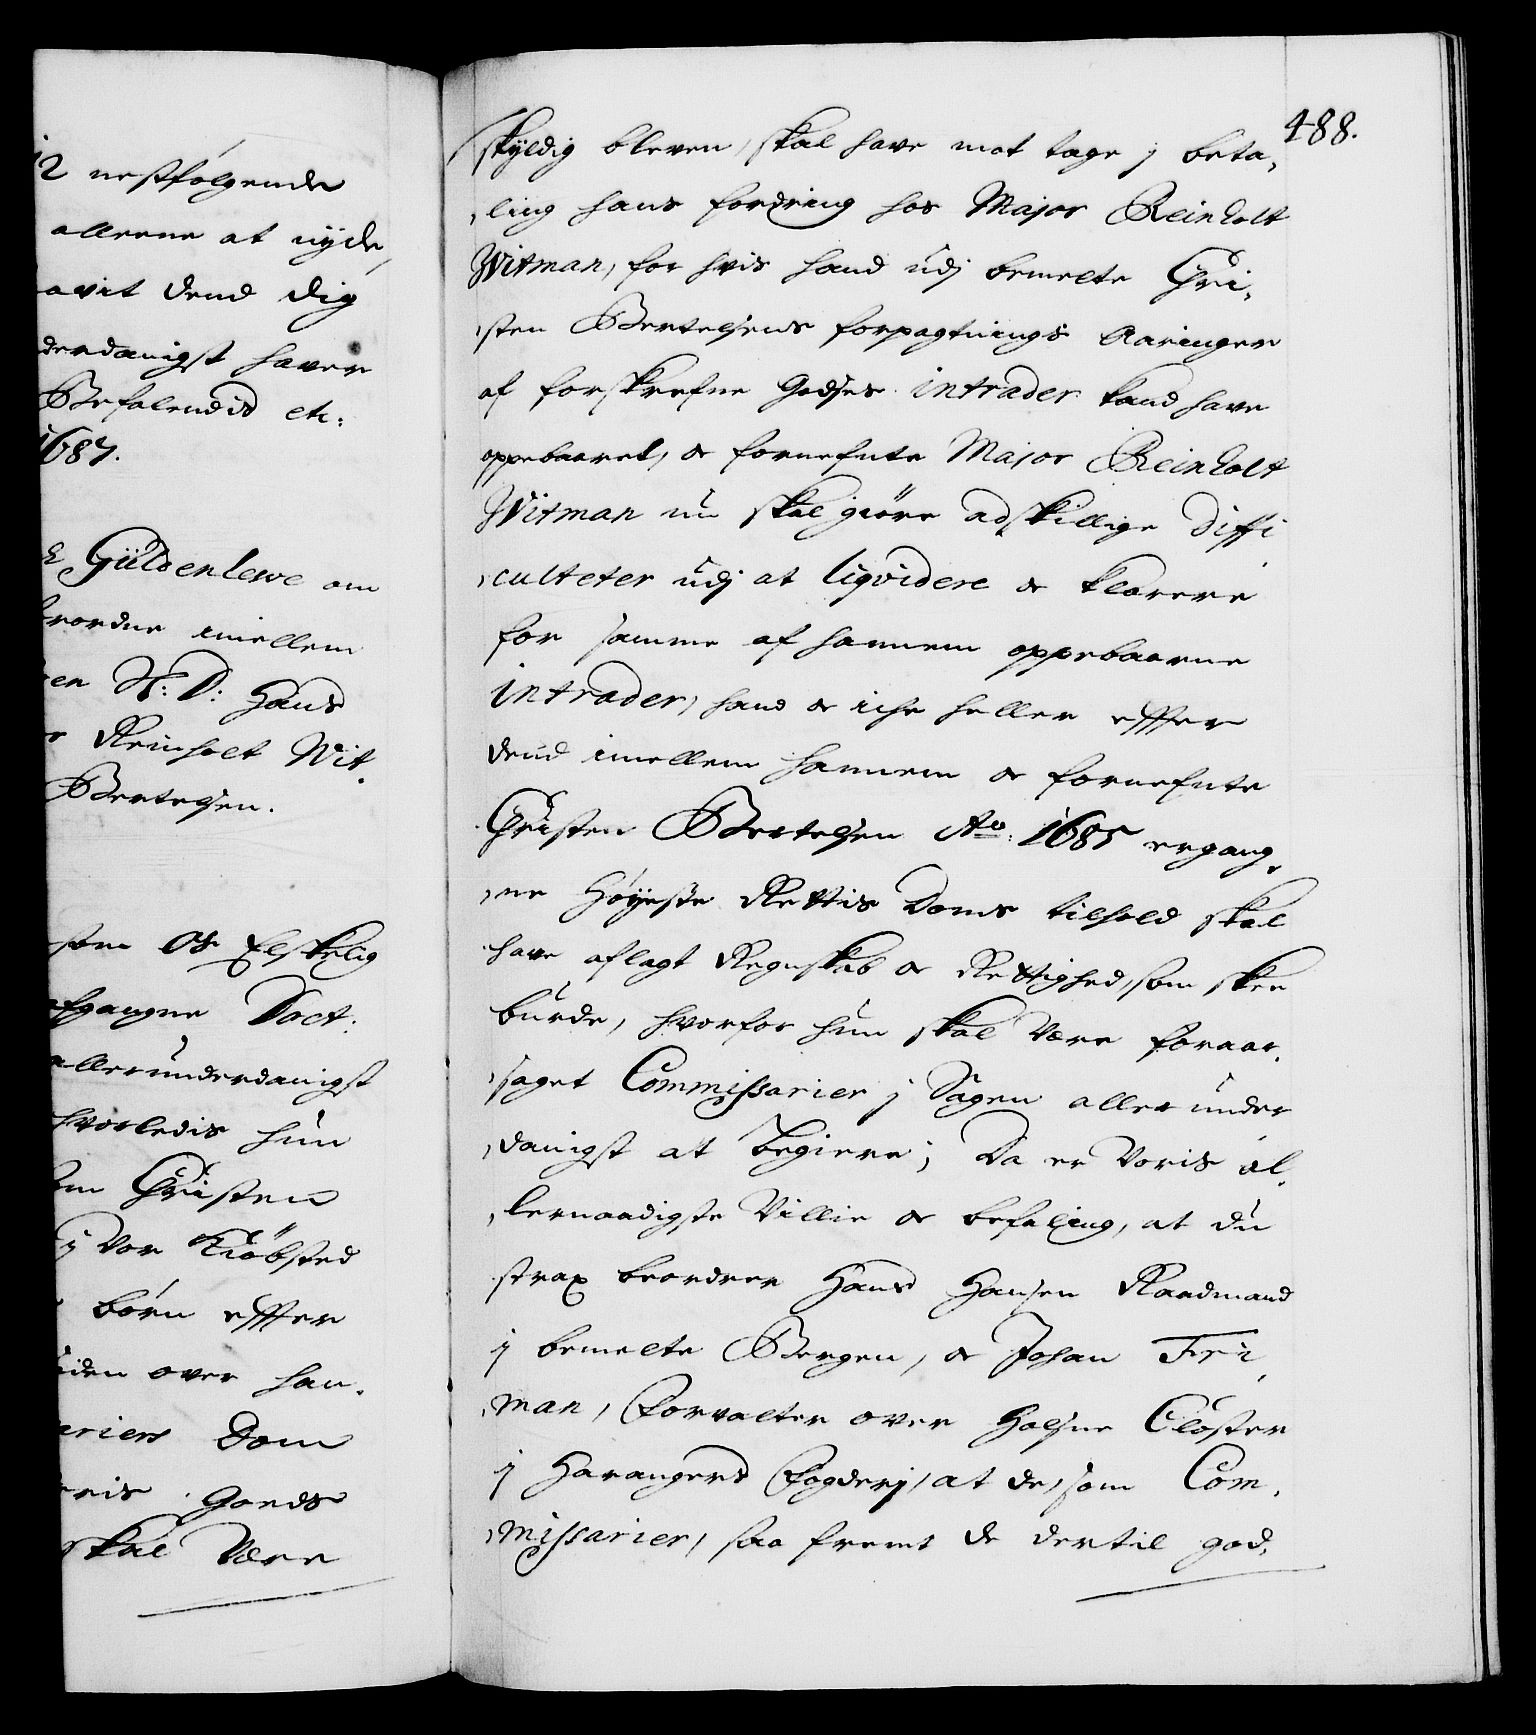 2 nestfølgende
alleene at nyde,
avit dend dig
derdanigst haver
Befalendis etc:
1687.
Güldenlewe om
imellem
en N: D: Hans
r Reinholt Wit,
Bertelsen.
som Os Elskelig
afgangne Doct:
allerunderdanigst
hvorledis hun
Christen
j Vor Kiöbsted
börn effter
iden over han,
ariers Dom
eris Goeds
skal Være
488.
skyldig bleven, skal have mot tage j beta,
,ling hans fordring hos Major Reinholt
Witman, for hvis hand udj bemelte Chri,
,sten Bertelsens forpagtnings Aaringer
af forskrefne Godses intrader kand have
oppebaaret, oc fornefnte Major Reinholt
Witman nu skal giöre adskillige diffi
,culteter udj at liqvidere oc klarere
for samme af hannem oppebaarne
intrader, hand oc icke heller effter
dend imellem hannem oc fornefnte
Christen Bertelsen Ao: 1685 ergang,
,ne Höyeste Rettis Doms tilhold skal
have aflagt Regnskab oc Rettighed, som skee
burde, hvorfor hun skal Være foraar,
,saget Commissarier j Sagen allerunder
,danigst at begiere; Da er Voris al,
,lernaadigste Villie oc befaling, at du
strax beordrer Hans Hansen Raadmand
j bemelte Bergen, oc Johan Fri,
,man, Forvalter over Halsne Closter
j Harangers Fogderj, at de, som Com,
,missarier, saa fremt de dertil god,